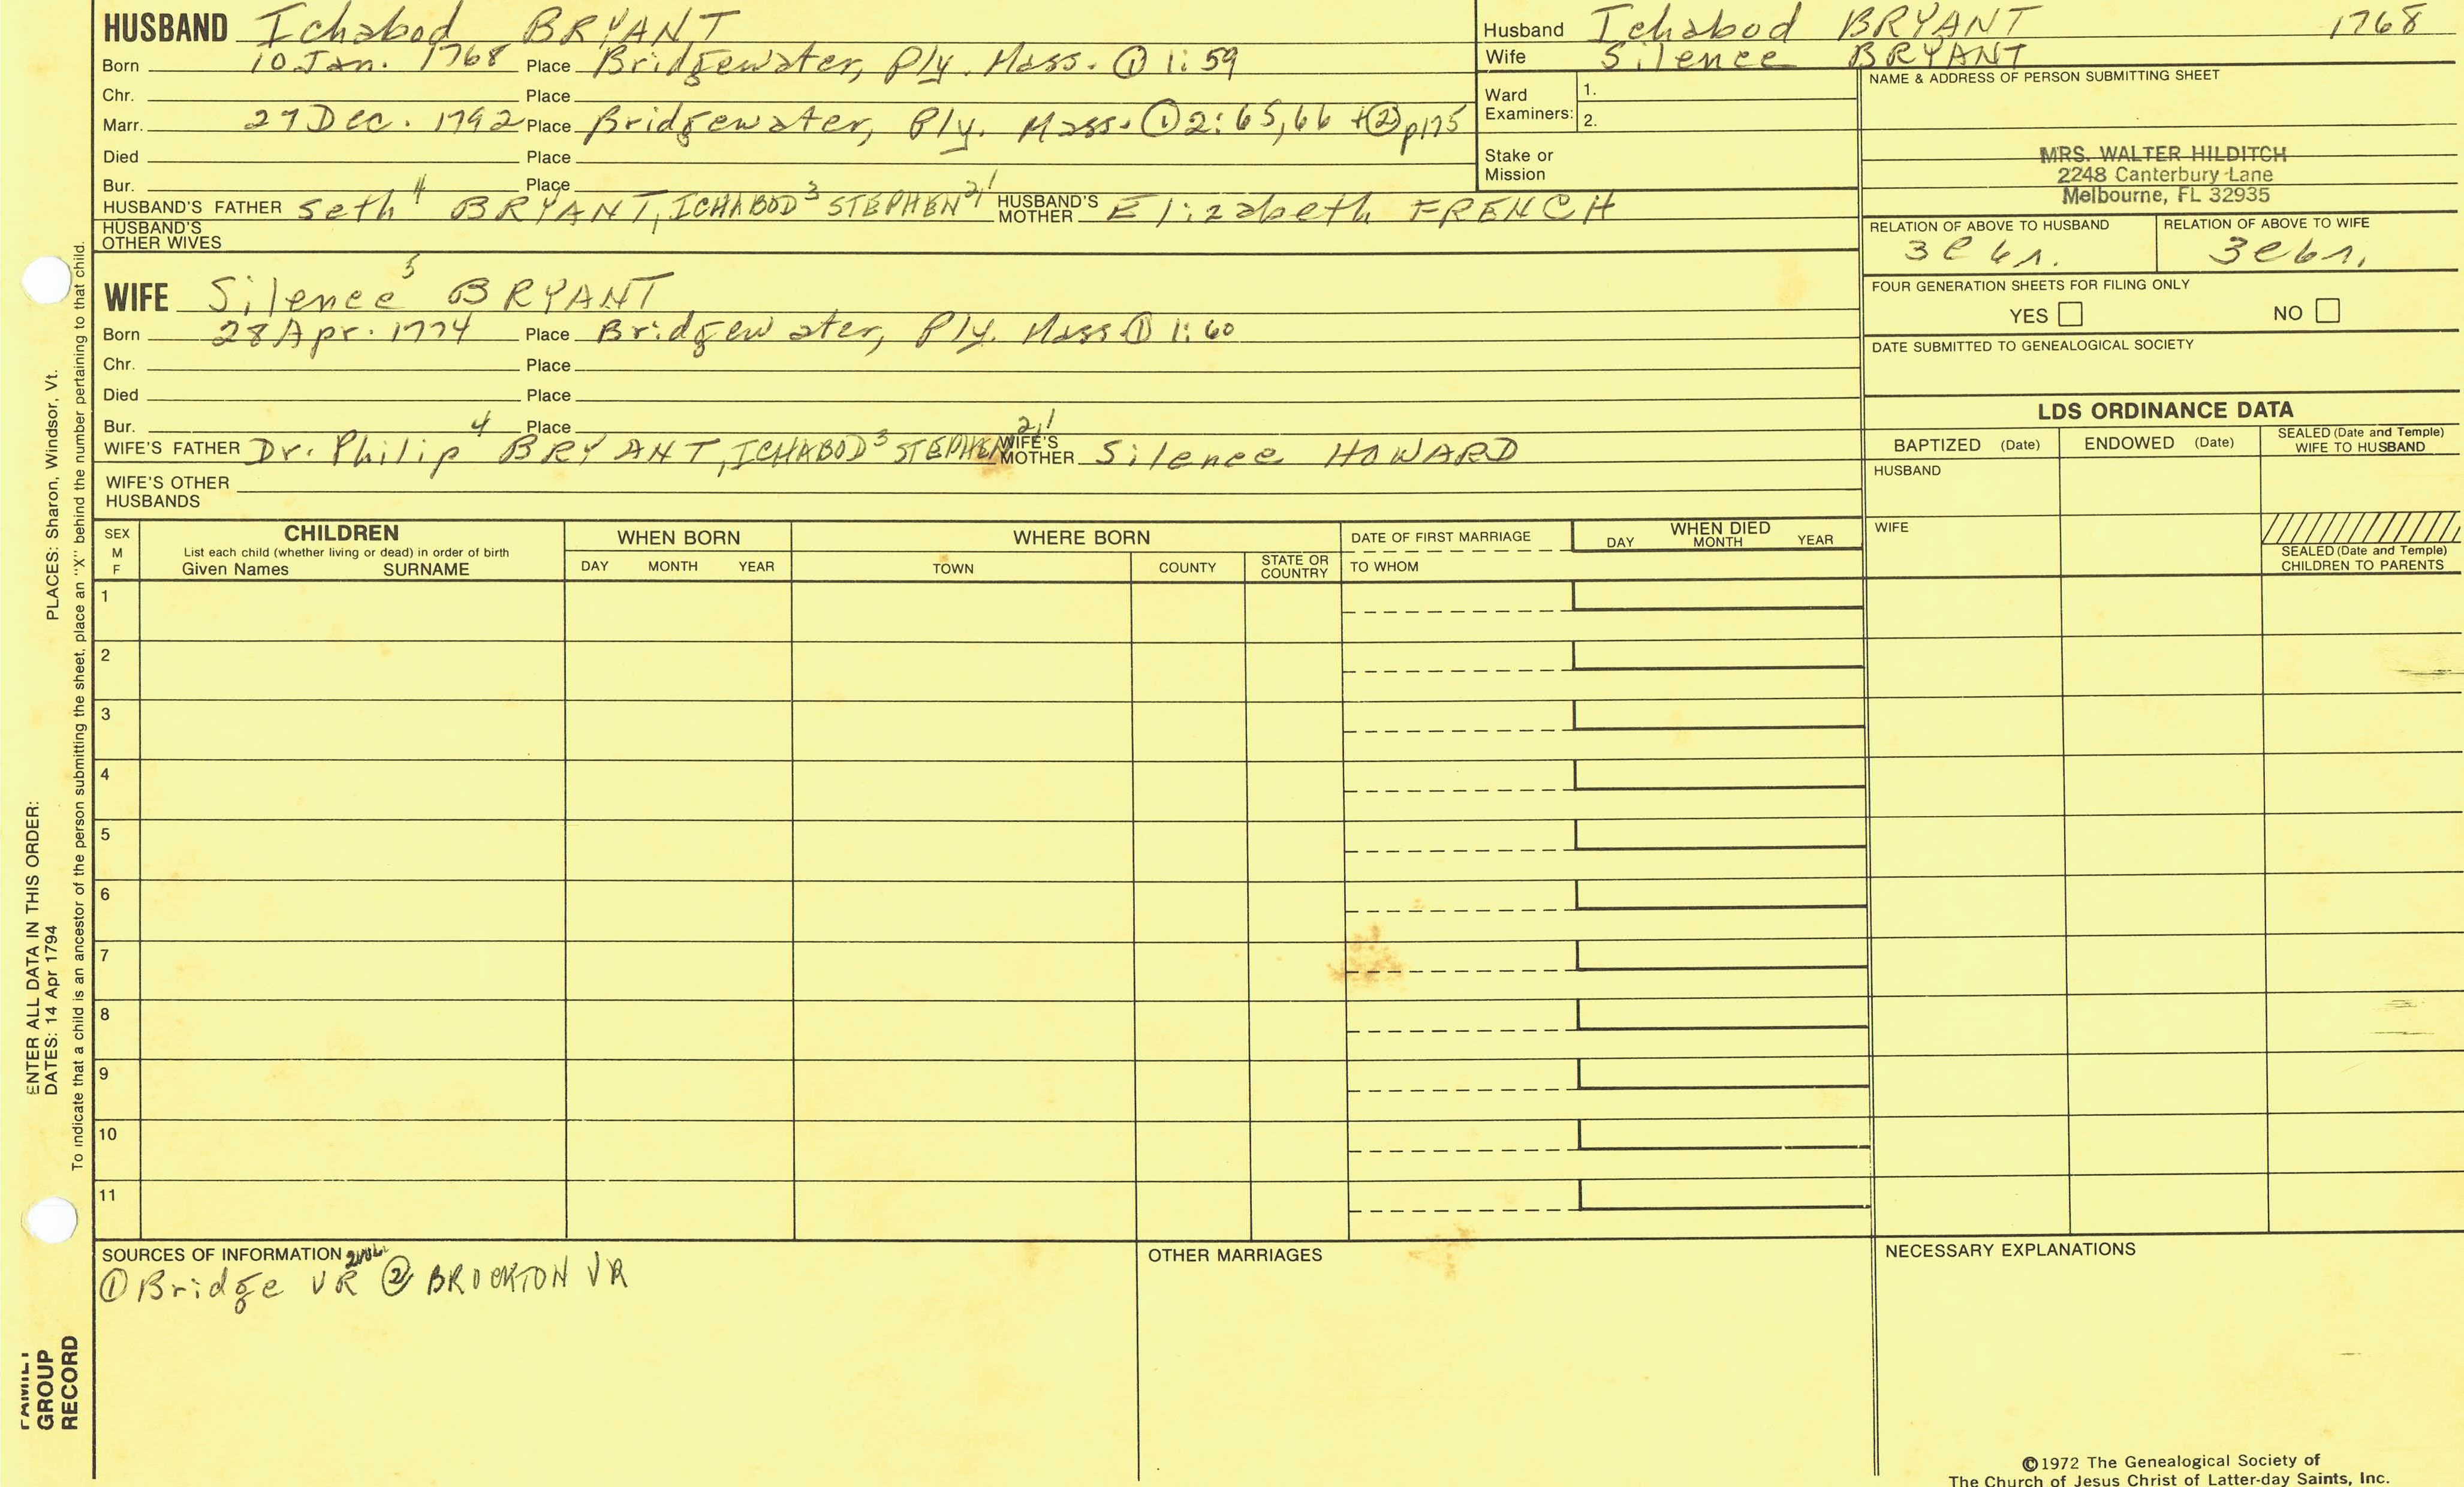 HUSBAND Ichabod BRYANT
Born 10 Jan. 1768 Place Bridgewater, Ply. Mass. ① 1:59
Chr. Place
Marr. 27 Dec. 1792 Place Bridgewater, Ply. Mass. ① 2:65,66 + ② p175
Died Place
Bur. Place
HUSBAND'S FATHER Seth⁴ BRYANT, ICHABOD³ STEPHEN²,¹ HUSBAND'S MOTHER Elizabeth FRENCH
HUSBAND'S OTHER WIVES
Husband Ichabod BRYANT 1768
Wife Silence BRYANT
Ward Examiners: 1.
2.
Stake or Mission
NAME & ADDRESS OF PERSON SUBMITTING SHEET
MRS. WALTER HILDITCH
2248 Canterbury Lane
Melbourne, FL 32935
RELATION OF ABOVE TO HUSBAND RELATION OF ABOVE TO WIFE
FOUR GENERATION SHEETS FOR FILING ONLY
YES NO
DATE SUBMITTED TO GENEALOGICAL SOCIETY
WIFE Silence⁵ BRYANT
Born 28 Apr. 1774 Place Bridgewater, Ply. Mass ① 1:60
Chr. Place
Died Place
Bur. Place
WIFE'S FATHER Dr. Philip⁴ BRYANT, ICHABOD³ STEPHEN²,¹ WIFE'S MOTHER Silence HOWARD
WIFE'S OTHER HUSBANDS
LDS ORDINANCE DATA
BAPTIZED (Date) ENDOWED (Date) SEALED (Date and Temple) WIFE TO HUSBAND
HUSBAND
WIFE
SEALED (Date and Temple) CHILDREN TO PARENTS
SEX M F
CHILDREN
List each child (whether living or dead) in order of birth
Given Names SURNAME
WHEN BORN
DAY MONTH YEAR
WHERE BORN
TOWN COUNTY STATE OR COUNTRY
DATE OF FIRST MARRIAGE
TO WHOM
WHEN DIED
DAY MONTH YEAR
1
2
3
4
5
6
7
8
9
10
11
SOURCES OF INFORMATION
① Bridge VR ② BROCKTON VR
OTHER MARRIAGES
NECESSARY EXPLANATIONS
©1972 The Genealogical Society of
The Church of Jesus Christ of Latter-day Saints, Inc.
ENTER ALL DATA IN THIS ORDER:
DATES: 14 Apr 1794 PLACES: Sharon, Windsor, Vt.
To indicate that a child is an ancestor of the person submitting the sheet, place an "X" behind the number pertaining to that child.
FAMILY
GROUP
RECORD